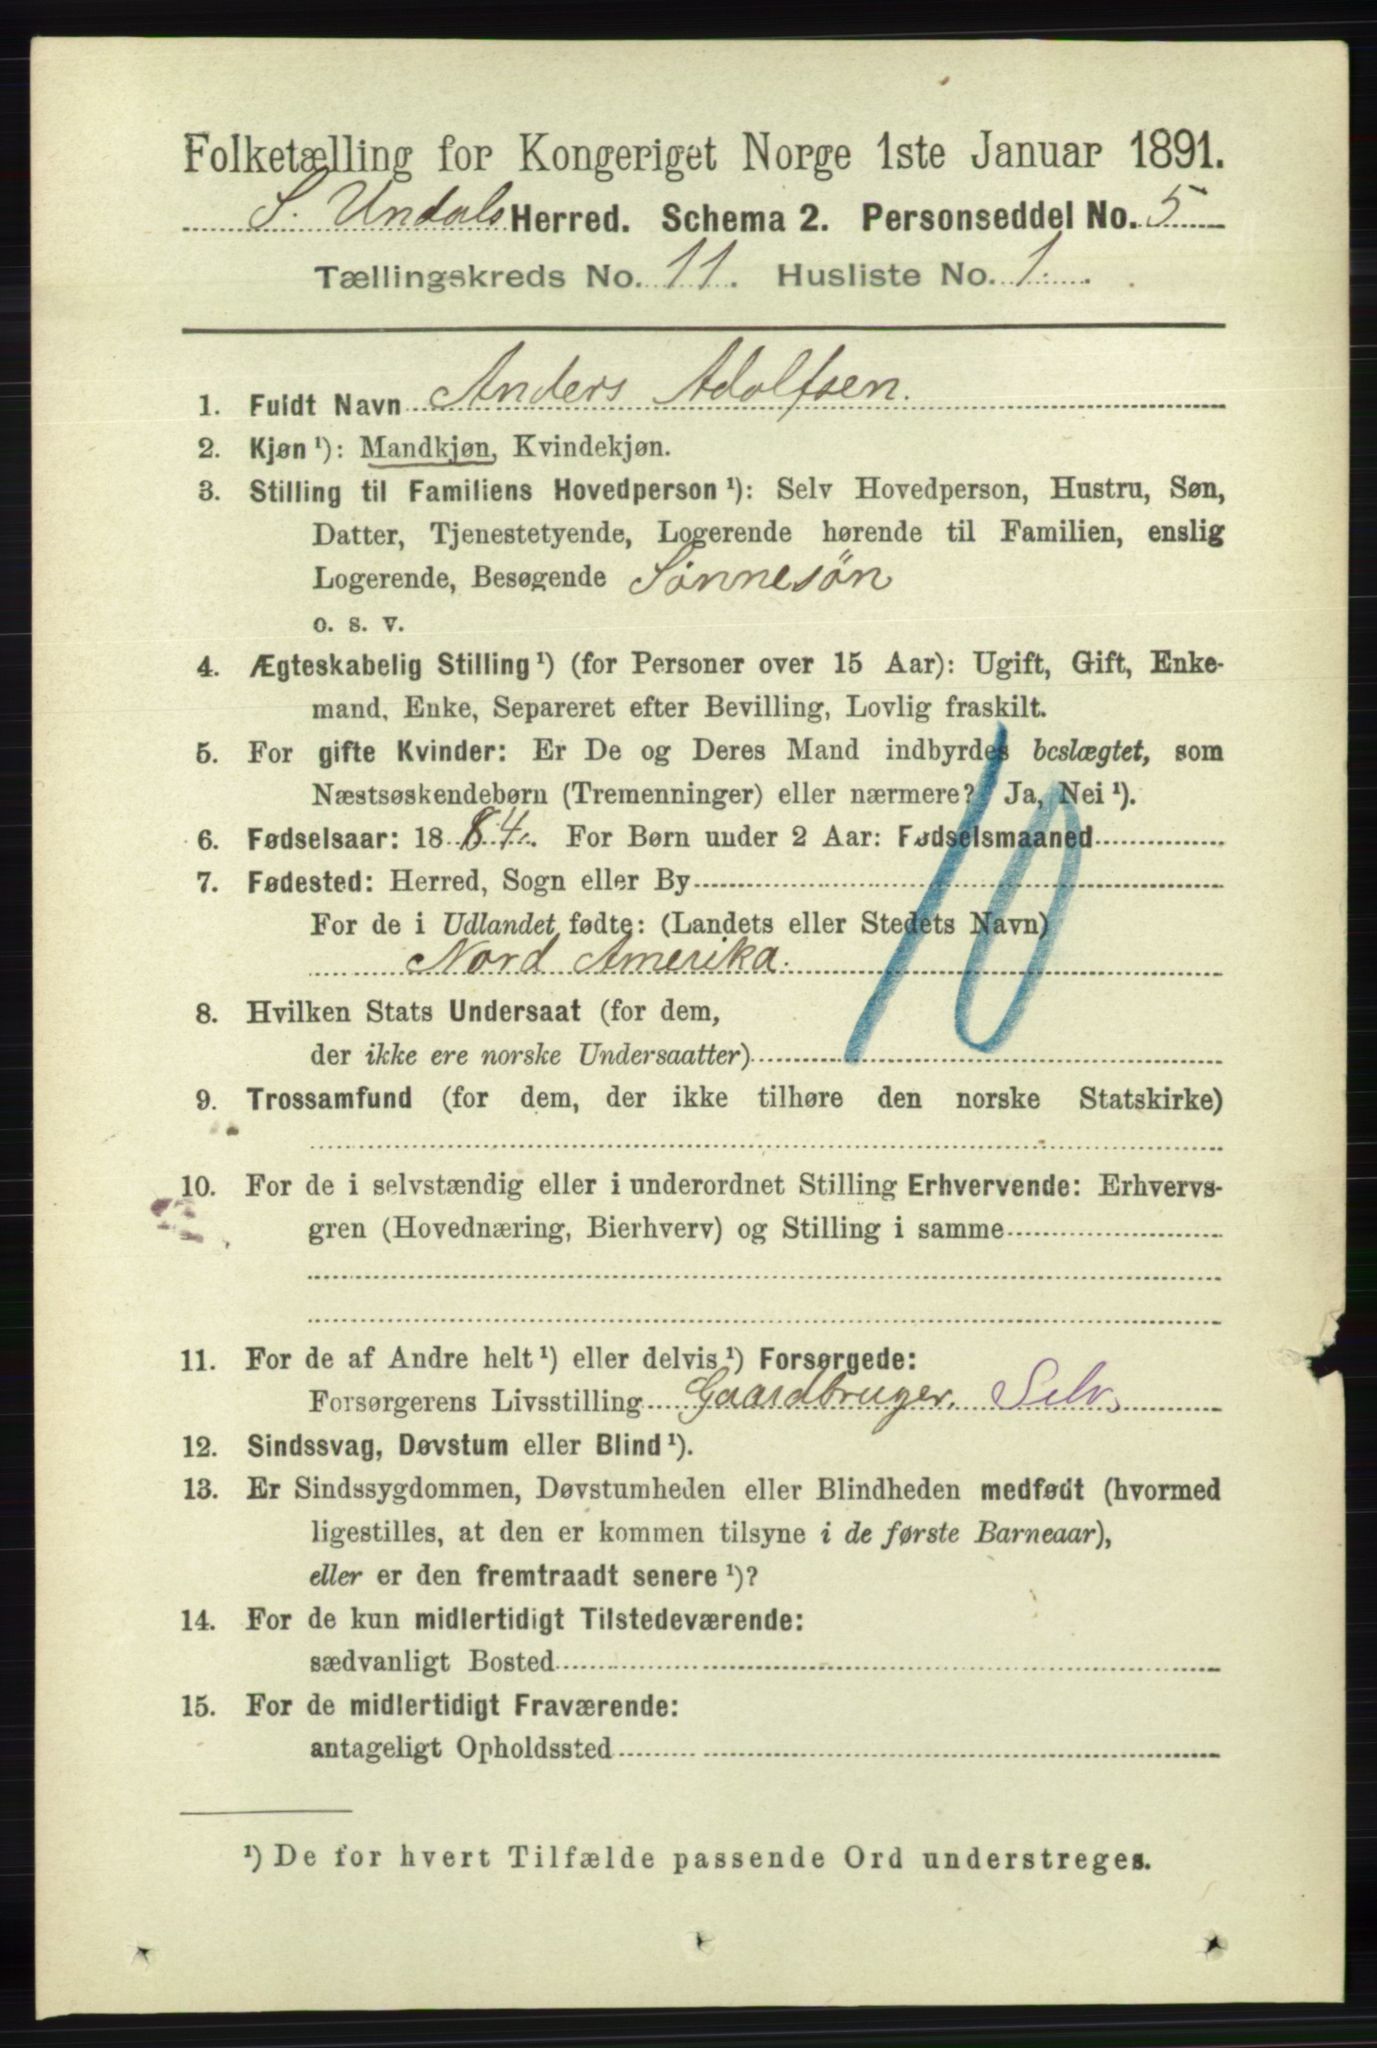 Folketælling for Kongeriget Norge 1ste Januar 1891.
S. Undals Herred. Schema 2. Personseddel No. 5
Tællingskreds No. 11. Husliste No. 1.
1. Fuldt Navn Anders Adolfsen.
2. Kjøn ¹): Mandkjøn, Kvindekjøn.
3. Stilling til Familiens Hovedperson ¹): Selv Hovedperson, Hustru, Søn,
Datter, Tjenestetyende, Logerende hørende til Familien, enslig
Logerende, Besøgende Sönnesön
o. s. v.
4. Ægteskabelig Stilling ¹) (for Personer over 15 Aar): Ugift, Gift, Enke-
mand, Enke, Separeret efter Bevilling, Lovlig fraskilt.
5. For gifte Kvinder: Er De og Deres Mand indbyrdes beslægtet, som
Næstsøskendebørn (Tremenninger) eller nærmere? Ja, Nei ¹).
6. Fødselsaar: 1884. For Børn under 2 Aar: Fødselsmaaned
7. Fødested: Herred, Sogn eller By
For de i Udlandet fødte: (Landets eller Stedets Navn)
Nord Amerika.
10
8. Hvilken Stats Undersaat (for dem,
der ikke ere norske Undersaatter)
9. Trossamfund (for dem, der ikke tilhøre den norske Statskirke)
10. For de i selvstændig eller i underordnet Stilling Erhvervende: Erhvervs-
gren (Hovednæring, Bierhverv) og Stilling i samme
11. For de af Andre helt ¹) eller delvis ¹) Forsørgede:
Forsørgerens Livsstilling Gaardbruger. Selv.
12. Sindssvag, Døvstum eller Blind ¹).
13. Er Sindssygdommen, Døvstumheden eller Blindheden medfødt (hvormed
ligestilles, at den er kommen tilsyne i de første Barneaar),
eller er den fremtraadt senere ¹)?
14. For de kun midlertidigt Tilstedeværende:
sædvanligt Bosted
15. For de midlertidigt Fraværende:
antageligt Opholdssted
¹) De for hvert Tilfælde passende Ord understreges.